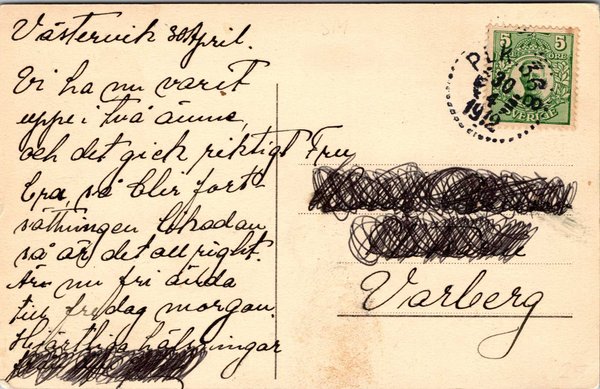 Västervik 30 April.
Vi ha nu varit
uppe i två ämne,
och det gick riktigt
bra, så blir fort-
sättningen likadan
så är det all right.
Äro nu fri ända
till fredag morgon.
Hjärtliga hälsningar
Fru
Varberg
5 5
ÖRE
SVERIGE
PLK
30 4
1912